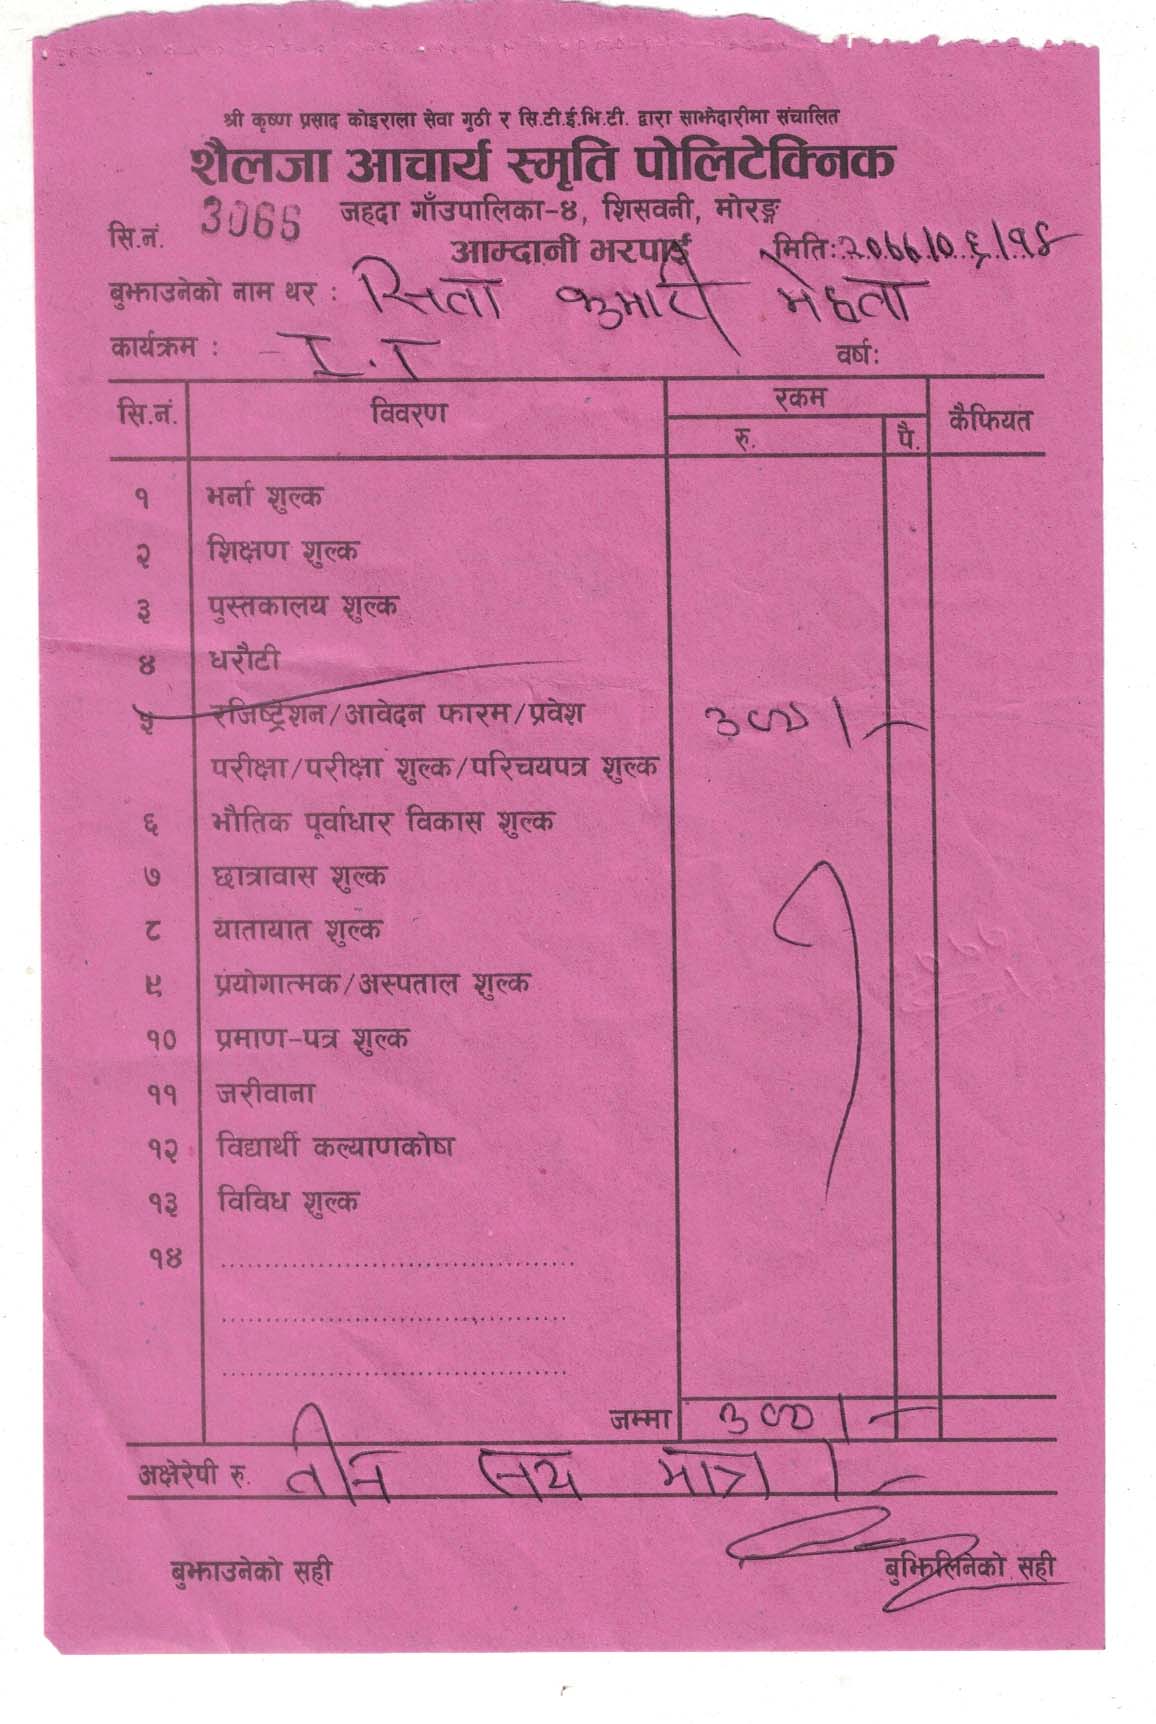 श्री कृष्ण प्रसाद कोइराला सेवा गुठी र सि.टी.ई.भि.टी. द्वारा साझेदारीमा संचालित
शैलजा आचार्य स्मृति पोलिटेक्निक
जहदा गाँउपालिका-४, शिसवनी, मोरङ्ग
सि.नं. 3066
आम्दानी भरपाई मिति: २०७७/०६/१४
बुझाउनेको नाम थर : सिता कुमारी मेहता
कार्यक्रम : I.T वर्ष:
सि.नं. विवरण रकम कैफियत
रु. पै.
१ भर्ना शुल्क
२ शिक्षण शुल्क
३ पुस्तकालय शुल्क
४ धरौटी
५ रजिष्ट्रेशन/आवेदन फारम/प्रवेश ३००/-
परीक्षा/परीक्षा शुल्क/परिचयपत्र शुल्क
६ भौतिक पूर्वाधार विकास शुल्क
७ छात्रावास शुल्क
८ यातायात शुल्क
९ प्रयोगात्मक/अस्पताल शुल्क
१० प्रमाण-पत्र शुल्क
११ जरीवाना
१२ विद्यार्थी कल्याणकोष
१३ विविध शुल्क
१४
जम्मा ३००/-
अक्षेरेपी रु. तीन सय मात्र।-
बुझाउनेको सही बुझिलिनेको सही